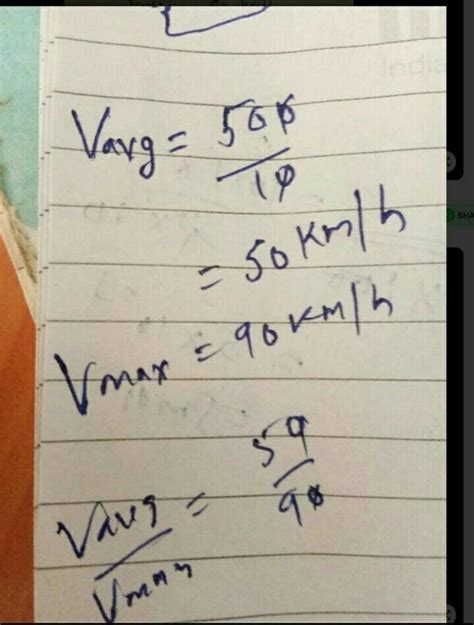 India
Vavg = 500/10
= 50 Km/h
Vmax = 90 Km/h
Vavg/Vmax = 50/90
SHA